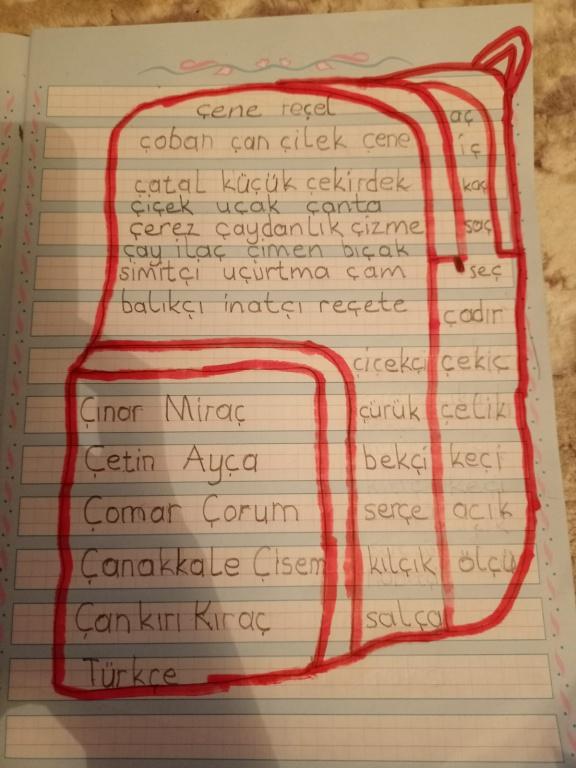 çene reçel
çoban çan çilek çene
çatal küçük çekirdek
çiçek uçak çanta
çerez çaydanlık çizme
çay ilaç çimen bıçak
simitçi uçurtma çam
balıkçı inatçı reçete
aç
iç
kaç
saç
seç
çadır
çiçekçi çekiç
çürük çelik
bekçi keçi
serçe açık
kılçık ölçü
salça
Çınar Miraç
Çetin Ayça
Çomar Çorum
Çanakkale Çisem
Çankırı Kıraç
Türkçe